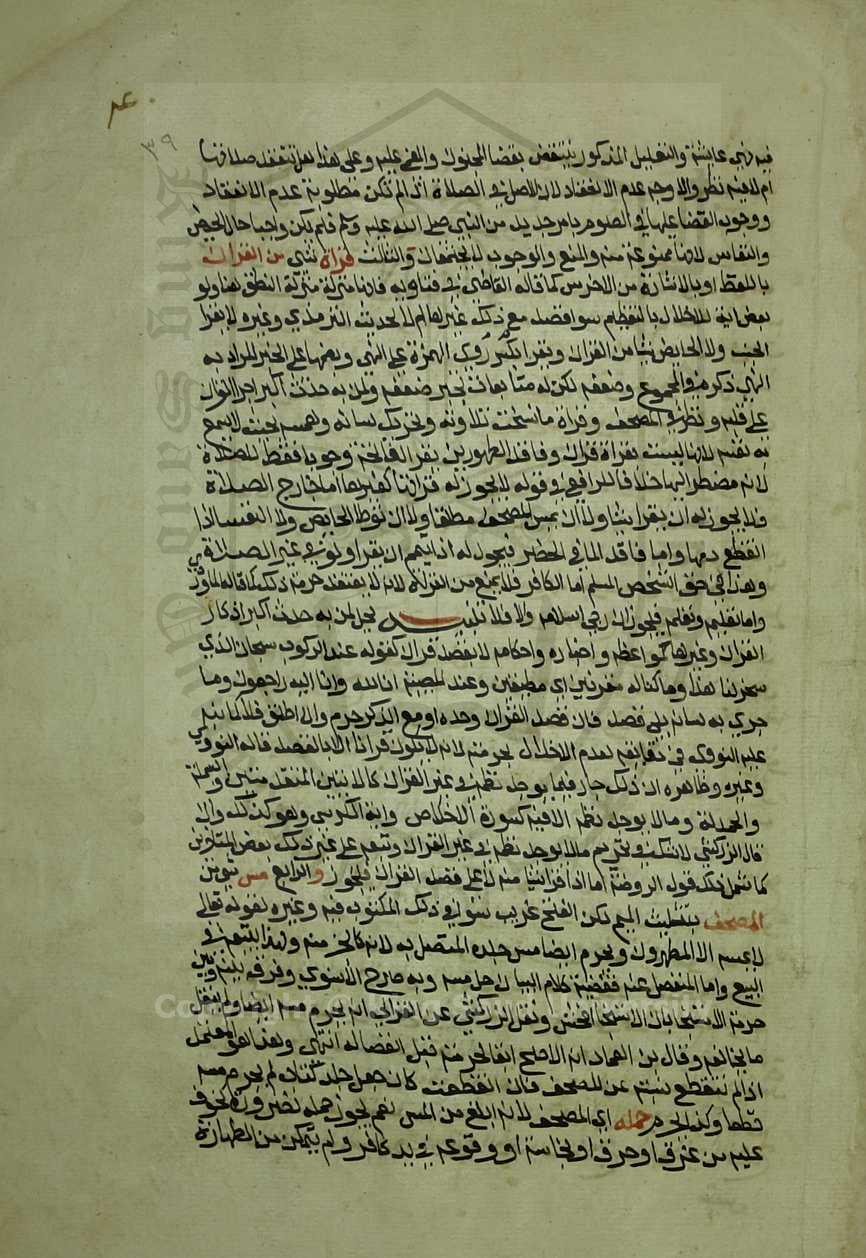 ٤٠
٣٩
فيه نهي عايشة والتعليل المذكور ينتقض بقضا المجنون والمغمى عليه وعلى هذا هل تنعقد صلاتها
ام لا فيه نظر والاوجه عدم الانعقاد لان الاصل في الصلاة اذا لم تكن مطلوبة عدم الانعقاد
ووجوب القضا عليها في الصوم بامر جديد من النبي صلى الله عليه وسلم فلم يكن واجبا حال الحيض
والنفاس لانها ممنوعة منه والمنع والوجوب لا يجتمعان والثالث قراة شي من القران
باللفظ او بالاشارة من الاخرس كما قاله القاضي في فتاويه فانها منزلة منزلة النطق هنا ولو
بعض اية للاخلال بالتعظيم سوا قصد مع ذلك غيرها ام لا لحديث الترمذي وغيره لا يقرا
الجنب ولا الحايض شيا من القران ويقرا بكسر الهمزة على النهي وبضمها على الخبر المراد به
النهي ذكره في المجموع وضعفه لكن له متابعات تجبر ضعفه ولمن به حدث اكبر اجرا القران
على قلبه ونظر في المصحف وقراة ما نسخت تلاوته وتحريك لسانه وهمسه بحيث لا يسمع
به نفسه لانها ليست بقراة قران وفاقد الطهورين يقرا الفاتحة وجوبا فقط للصلاة
لانه مضطر اليها خلافا للرافعي في قوله لا يجوز له قراتها كغيرها اما خارج الصلاة
فلا يجوز له ان يقرا شيا ولا ان يمس المصحف مطلقا ولا ان توطا الحايض ولا النفسا اذا
انقطع دمها واما فاقد الما في الحضر فيجوز له اذا تيمم ان يقرا ولو في غير الصلاة
وهذا في حق الشخص المسلم اما الكافر فلا يمنع من القراة لانه لا يعتقد حرمة ذلك كما قاله الماوردي
واما تعليمه وتعلمه فيجوز ان رجي اسلامه والا فلا تنبيه يحل لمن به حدث اكبر اذكار
القران وغيرها كمواعظه واخباره واحكامه لا بقصد قران كقوله عند الركوب سبحان الذي
سخر لنا هذا وما كنا له مقرنين اي مطيقين وعند المصيبة انا لله وانا اليه راجعون وما
جرى به لسانه بلا قصد فان قصد القران وحده او مع الذكر حرم وان اطلق فلا كما نبه
عليه النووي في دقايقه لعدم الاخلال بحرمته لانه لا يكون قرانا الا بالقصد قاله النووي
وغيره وظاهره ان ذلك جار فيما يوجد نظمه في غير القران كالايتين المتقدمتين والبسملة
والحمدلة وما لا يوجد نظمه الا فيه كسورة الاخلاص واية الكرسي وهو كذلك وان
قال الزركشي لا شك في تحريم ما لا يوجد نظمه في غير القران وتبعه على ذلك بعض المتاخرين
كما شمل ذلك قول الروضة اما اذا قرا شيا منه لا على قصد القران فيجوز والرابع مس شي من
المصحف بتثليث الميم لكن الفتح غريب سوا في ذلك المكتوب فيه وغيره لقوله تعالى
لا يمسه الا المطهرون ويحرم ايضا مس جلده المتصل به لانه كالجز منه ولهذا يتبعه في
البيع واما المنفصل عنه فقضية كلام البيان حل مسه وبه صرح الاسنوي وفرق بينه وبين
حرمة الاستنجا بان الاستنجا افحش ونقل الزركشي عن الغزالي انه يحرم مسه ايضا ولم ينقل
ما يخالفه وقال بن العماد انه الاصح ابقا لحرمته قبل انفصاله انتهى وهذا هو المعتمد
اذا لم تنقطع نسبته عن المصحف فان انقطعت كان جعل جلد كتاب لم يحرم مسه
قطعا وكذا يحرم حمله اي المصحف لانه ابلغ من المس نعم يجوز حمله لضرورة كخوف
عليه من غرق او حرق او نجاسة او وقوعه في يد كافر ولم يتمكن من الطهارة